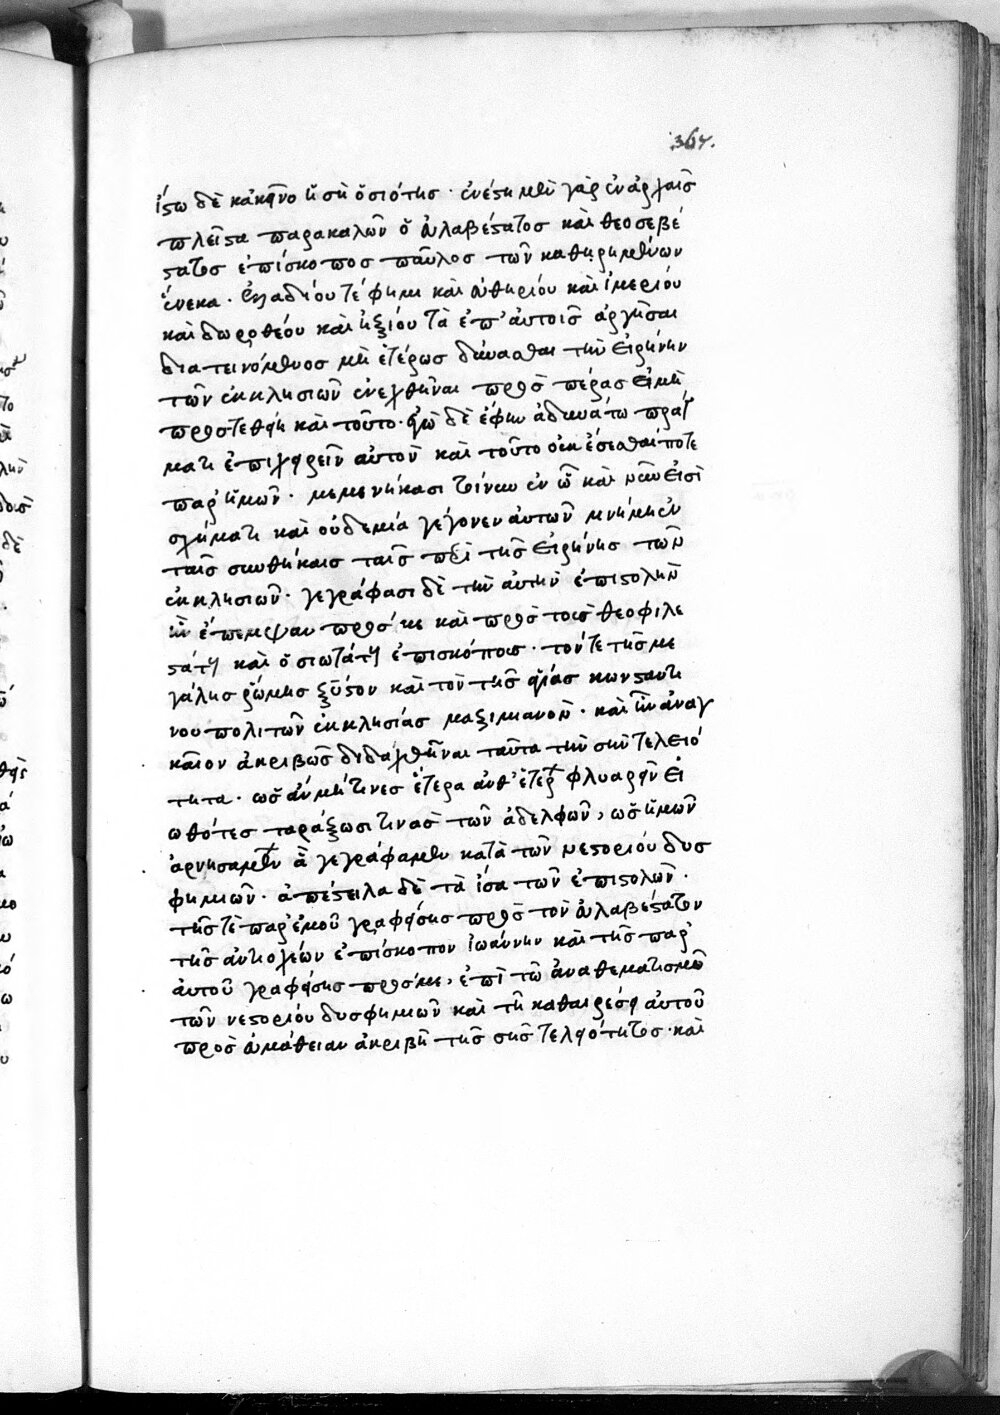 367.
ἴστω δὲ κἀκεῖνο ἡ σὴ ὁσιότης · ἐνέστη μὲν γὰρ ἐν ἀρχαῖς
πλεῖστα παρακαλῶν ὁ εὐλαβέστατος καὶ θεοσεβέ
στατος ἐπίσκοπος παῦλος τῶν καθῃρημένων
ἕνεκα · ἑλλαδίου τέ φημι καὶ εὐθηρίου καὶ ἱμερίου
καὶ δωροθέου καὶ ἠξίου τὰ ἐπ' αὐτοῖς ἀργῆσαι
διατεινόμενος μὴ ἑτέρως δύνασθαι τὴν εἰρήνην
τῶν ἐκκλησιῶν ἐνεχθῆναι πρὸς πέρας εἰ μὴ
προστεθῇ καὶ τοῦτο · ἐγὼ δὲ ἔφην ἀδυνάτω πράγ
ματι ἐπιχειρεῖν αὐτὸν καὶ τοῦτο οὐκ ἔσεσθαί ποτε
παρ' ἡμῶν · μεμενήκασι τοίνυν ἐν ᾧ καὶ νῦν εἰσὶ
σχήματι καὶ οὐδεμία γέγονεν αὐτῶν μνήμη ἐν
ταῖς συνθήκαις ταῖς περὶ τῆς εἰρήνης τῶν
ἐκκλησιῶν · γεγράφασι δὲ τὴν αὐτὴν ἐπιστολὴν
ἣν ἔπεμψαν πρός με καὶ πρὸς τοὺς θεοφιλε
στάτους καὶ ὁσιωτάτους ἐπισκόπους · τόν τε τῆς με
γάλης ῥώμης ξύστον καὶ τὸν τῆς ἁγίας κωνσταντι
νουπολιτῶν ἐκκλησίας μαξιμιανὸν · καὶ ἦν ἀναγ
καῖον ἀκριβῶς διδαχθῆναι ταῦτα τὴν σὴν τελειό
τητα · ὡς ἂν μή τινες ἕτερα ἀνθ' ἑτέρων φλυαρεῖν εἰ
ωθότες ταράξωσι τινὰς τῶν ἀδελφῶν, ὡς ἡμῶν
ἀρνησαμένων ἃ γεγράφαμεν κατὰ τῶν νεστορίου δυσ
φημιῶν · ἀπέστειλα δὲ τὰ ἴσα τῶν ἐπιστολῶν ·
τῆς τὲ παρ' ἐμοῦ γραφείσης πρὸς τὸν εὐλαβέστατον
τῆς ἀντιοχέων ἐπίσκοπον ἰωάννην καὶ τῆς παρ'
αὐτοῦ γραφείσης πρός με, ἐπὶ τῷ ἀναθεματισμῷ
τῶν νεστορίου δυσφημιῶν καὶ τῇ καθαιρέσει αὐτοῦ
πρὸς εὐμάθειαν ἀκριβῆ τῆς σῆς τελειότητος · καὶ